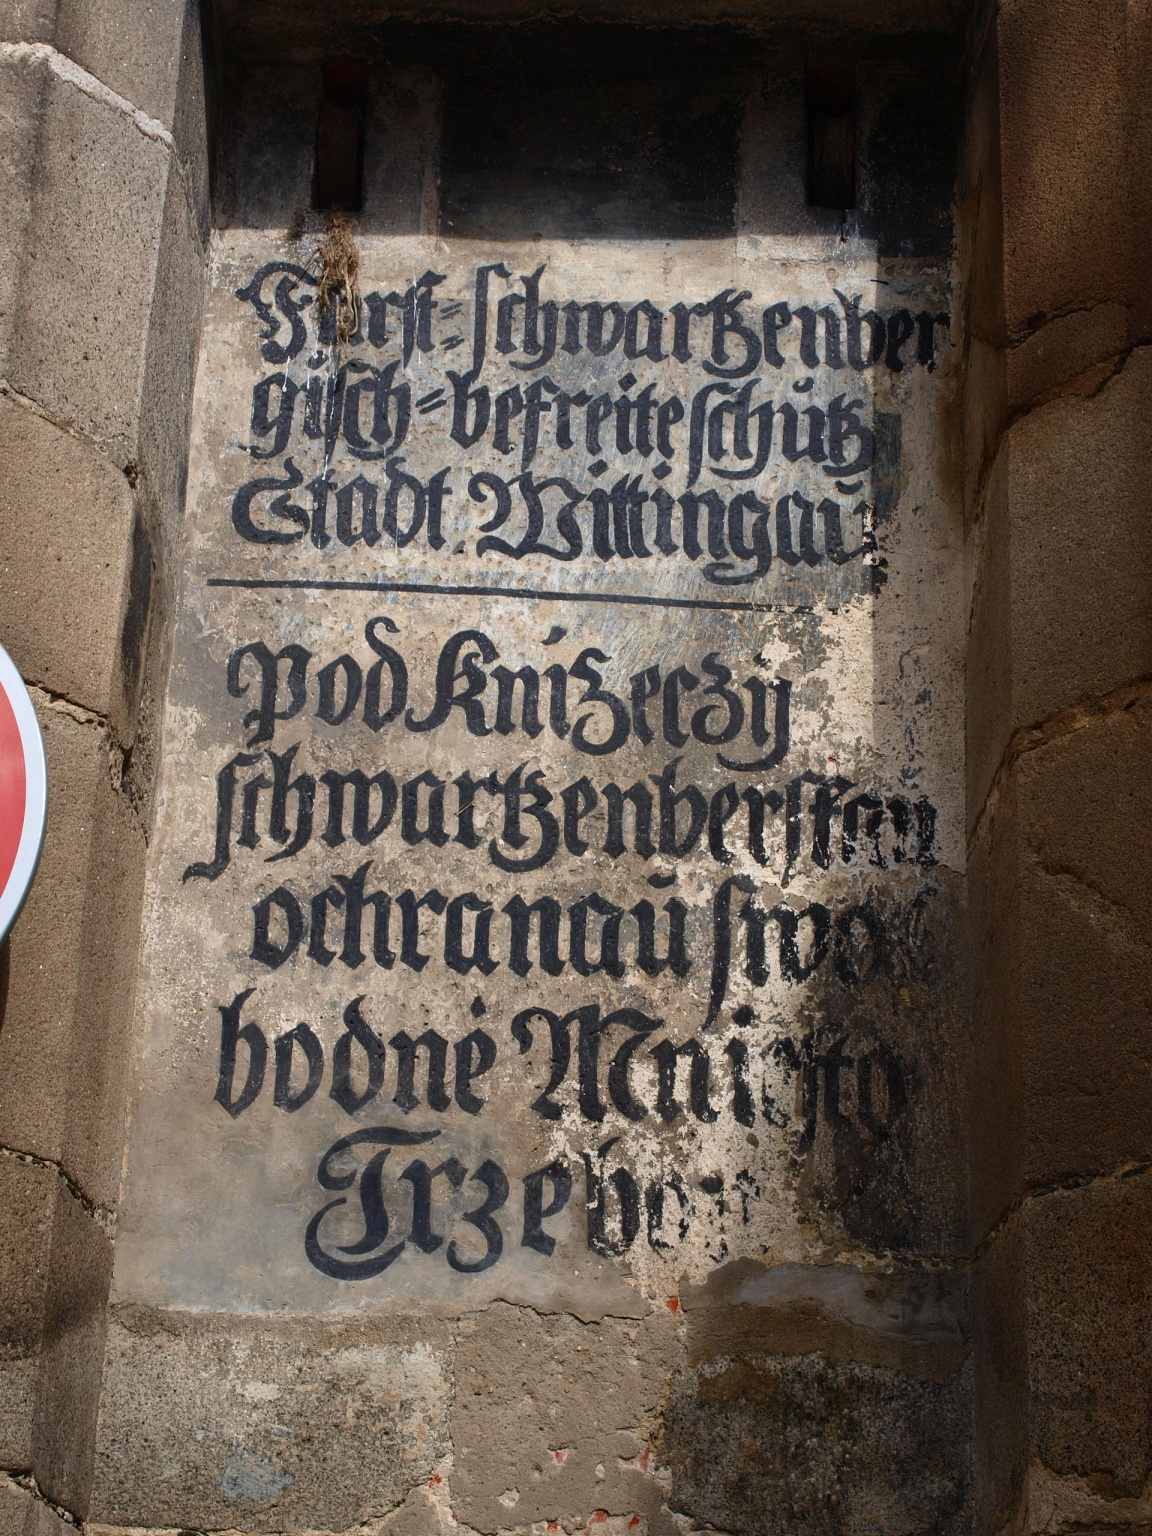 Fürst=schwartzenber
gisch=befreite schütz
Stadt Wittingaŭ
pod knižeczÿ
schwartzenberskaŭ
ochranaŭ swo
bodné Mniesto
Trzebon